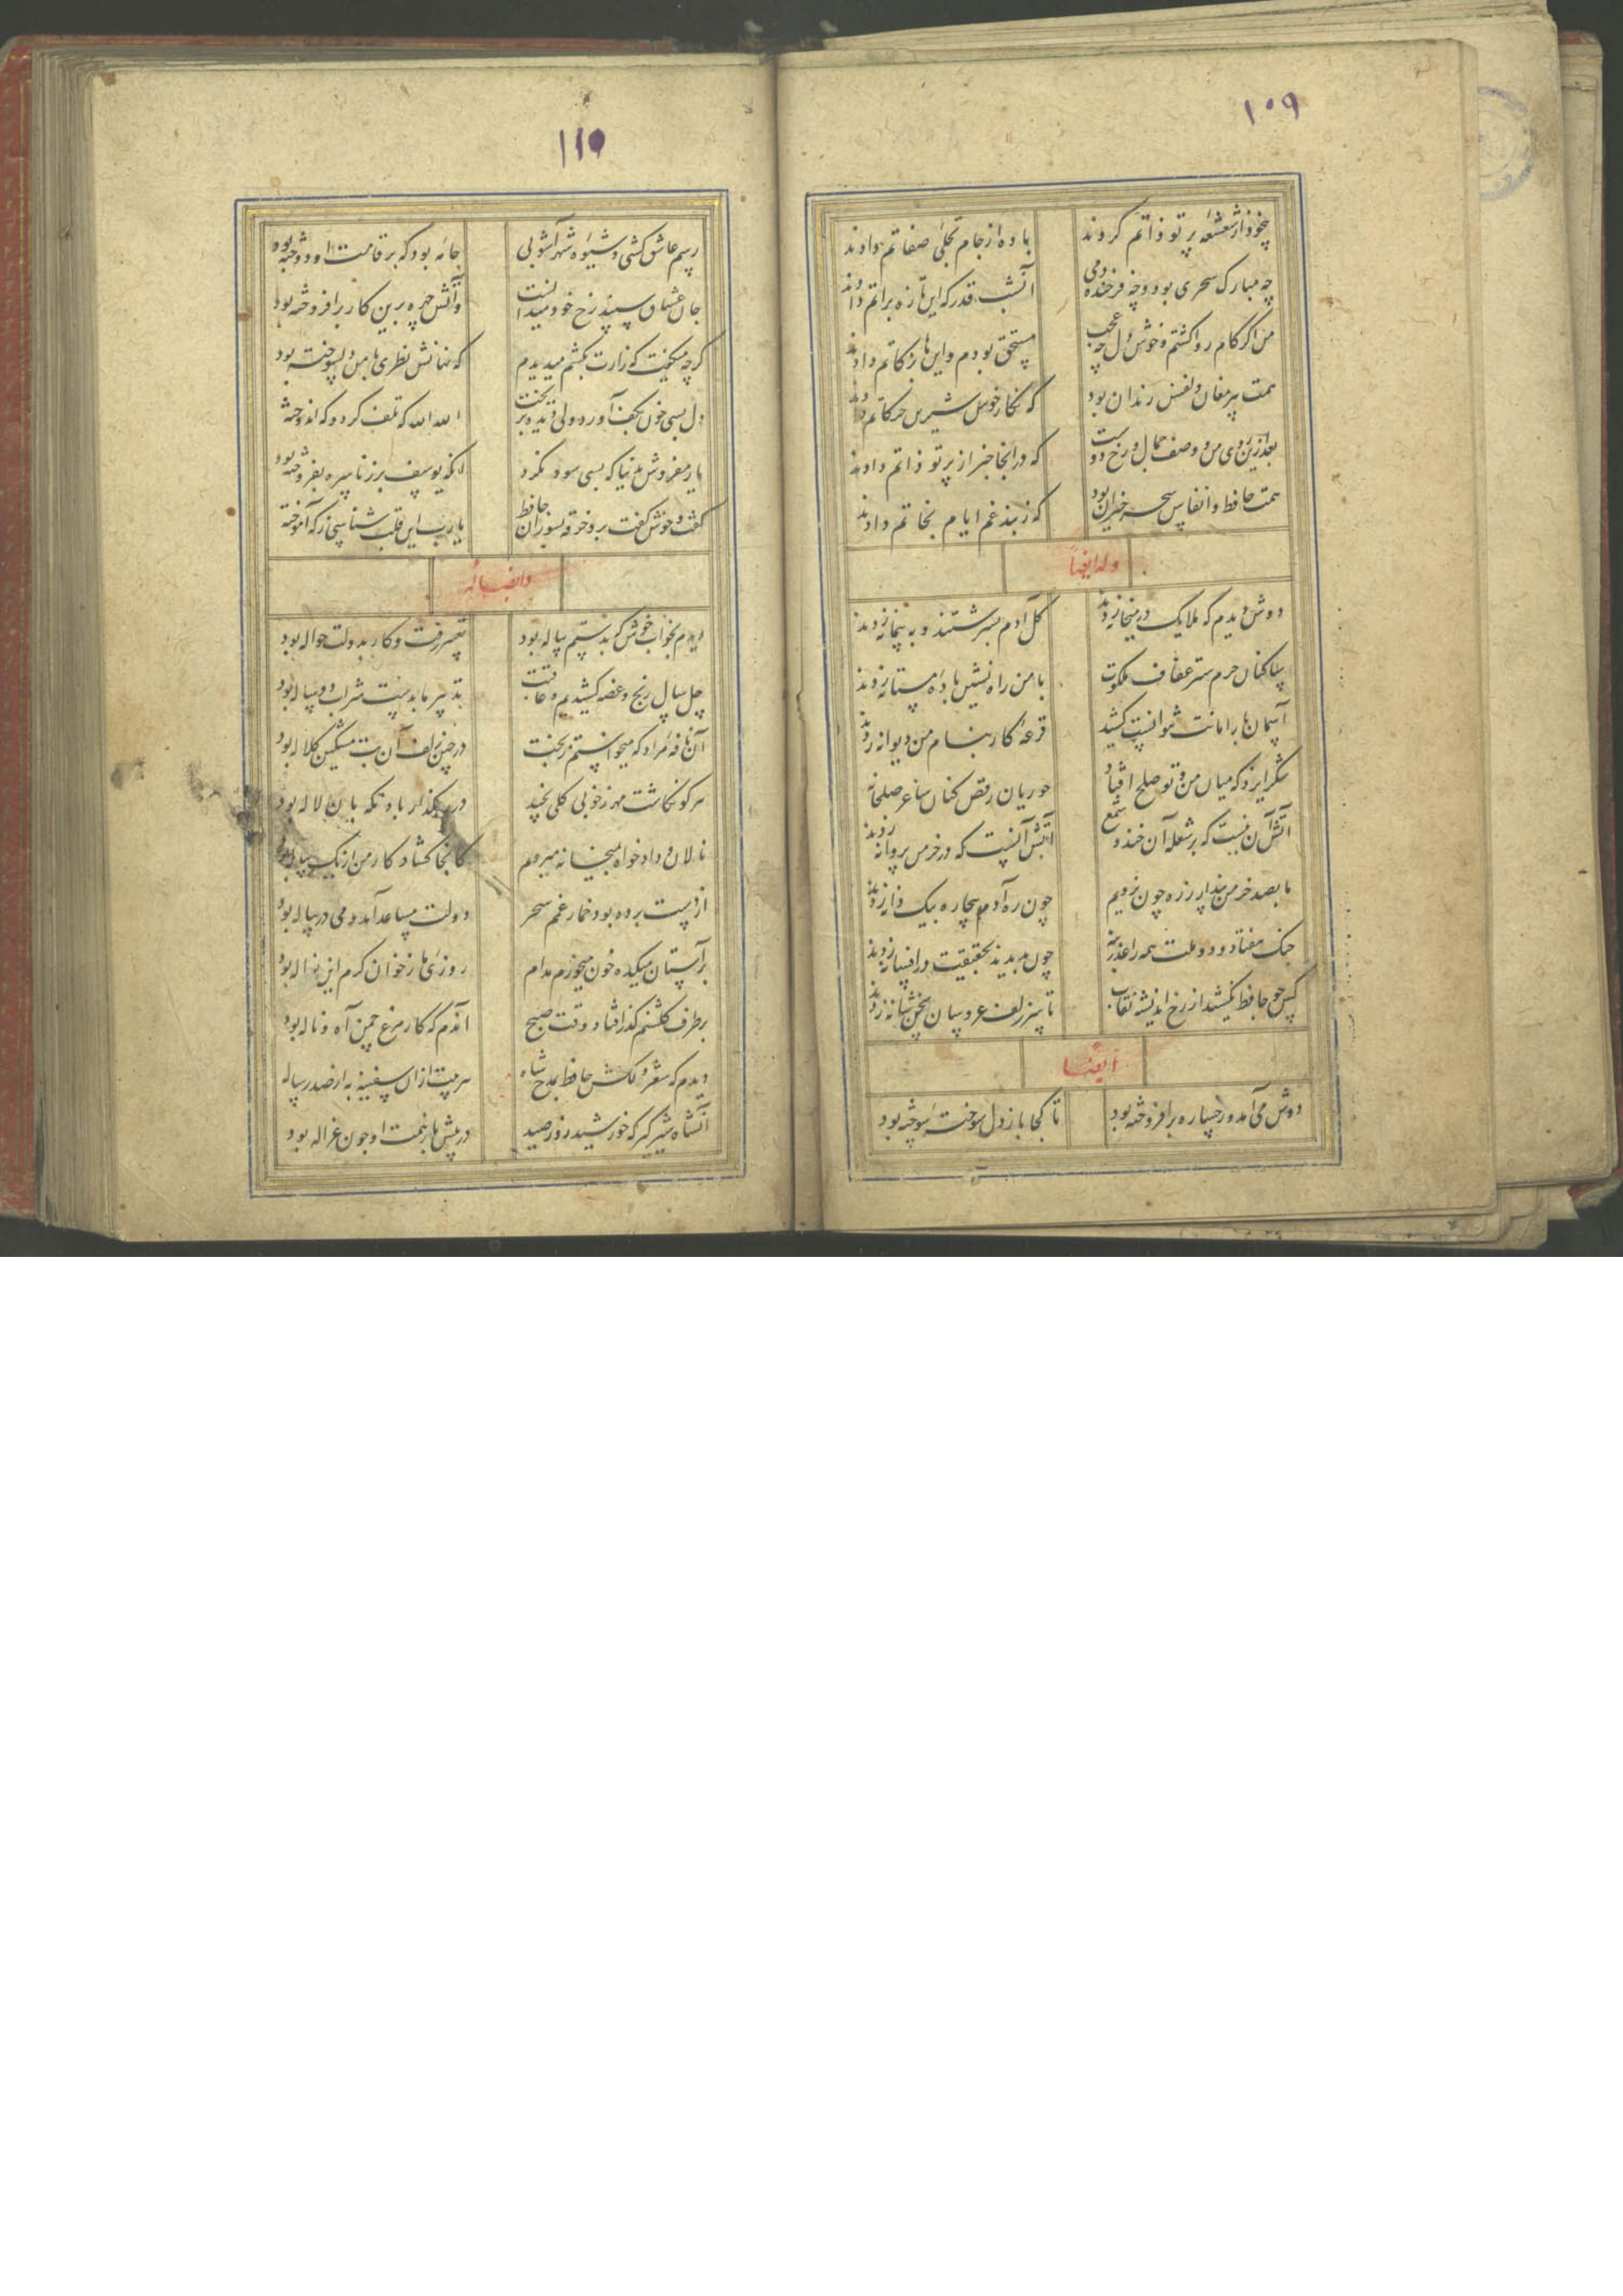 ۱۰۹
بیخود از شعشعه پرتو ذاتم کردند باده از جام تجلی صفاتم دادند
چه مبارک سحری بود و چه فرخنده دمی آنشب قدر که این تازه براتم دادند
من اگر کام روا گشتم و خوش دل چه عجب مستحق بودم و اینها بزکاتم دادند
همت پیر مغان و نفس رندان بود که نگار خوش شیرین حرکاتم دادند
بعد ازین روی من و وصف جمال رخ دوست که در آنجا خبر از پرتو ذاتم دادند
همت حافظ و انفاس سحر خیزان بود که ز بند غم ایام نجاتم دادند
وله ایضاً
دوش دیدم که ملایک در میخانه زدند گل آدم بسرشتند و به پیمانه زدند
ساکنان حرم ستر عفاف ملکوت با من راه نشین باده مستانه زدند
آسمان بار امانت نتوانست کشید قرعه کار بنام من دیوانه زدند
شکر ایزد که میان من و تو صلح افتاد حوریان رقص کنان ساغر صلحانه
آتش آن نیست که بر شعله آن خندد شمع آتش آنست که در خرمن پروانه زدند
ما بصد خرمن پندار ز ره چون نرویم چون ره آدم بیچاره بیک دانه زدند
جنک هفتاد و دو ملت همه را عذر بنه چون ندیدند حقیقت در افسانه زدند
کس چو حافظ نکشید از رخ اندیشه نقاب تا سر زلف عروسان سخن شانه زدند
ایضاً
دوش می آمد و رخساره برافروخته بود تا کجا باز دل سوخته سوخته بود
۱۱۰
رسم عاشق کشی و شیوه شهرآشوبی جامه بود که بر قامت او دوخته بود
جان عشاق سپند رخ خود میدانست و آتش چهره برین کار برافروخته بود
گرچه میگفت که زارت بکشم میدیدم که نهانش نظری با من دلسوخته بود
دل بسی خون بکف آورد ولی دیده بریخت الله الله که تلف کرد و که اندوخته
یار مفروش بدنیا که بسی سود نکرد آنکه یوسف بزر ناسره بفروخته بود
گفت و خوش گفت برو خرقه بسوزان حافظ یا رب این قلب شناسی ز که آموخته
وایضاً له
دیدم بخواب خوش که بدستم پیاله بود تعبیر رفت و کار بدولت حواله بود
چل سال رنج و غصه کشیدیم و عاقبت تدبیر ما بدست شراب دو ساله بود
آن نافه مراد که میخواستم ز بخت در چین زلف آن بت مشکین کلاله بود
هر کو نکاشت مهر ز خوبی گلی نچید در رهگذار باد نگهبان لاله بود
نالان و دادخواه بمیخانه میروم کانجا گشاد کار من از یک پیاله بود
از دست برده بود خمار غمم سحر دولت مساعد آمد و می در پیاله بود
بر آستان میکده خون میخورم مدام روزی ما ز خوان کرم این نواله بود
بر طرف گلشنم گذر افتاد وقت صبح آندم که کار مرغ چمن آه و ناله بود
دیدم که شعر دلکش حافظ بمدح شاه هر بیت از ان سفینه به از صد رساله
آنشاه شیرگیر که خورشید روز صید در پیش باز همت او چون غزاله بود